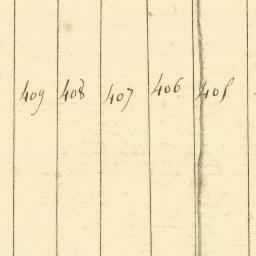 409 408 407 406 405